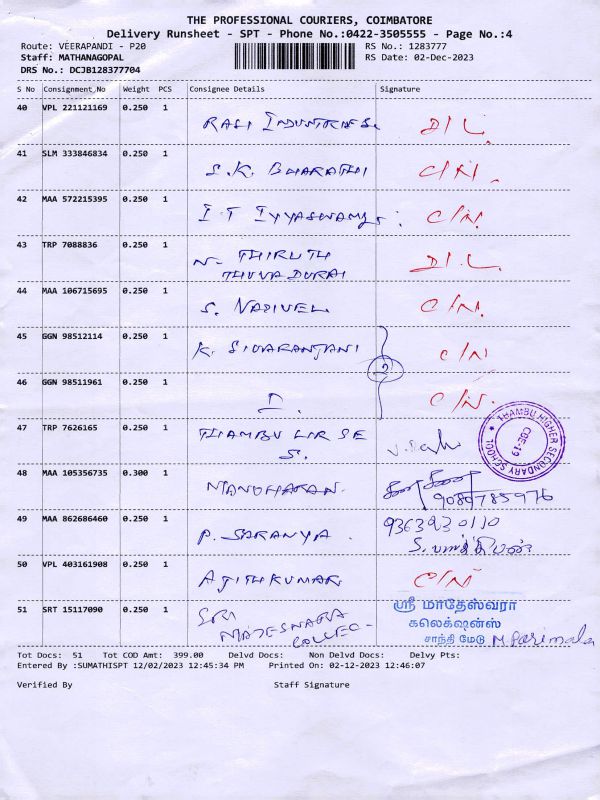 THE PROFESSIONAL COURIERS, COIMBATORE
Delivery Runsheet - SPT - Phone No.:0422-3505555 - Page No.:4
Route: VEERAPANDI - P20 RS No.: 1283777
Staff: MATHANAGOPAL RS Date: 02-Dec-2023
DRS No.: DCJB128377704
S No Consignment_No Weight PCS Consignee Details Signature
40 VPL 221121169 0.250 1
RASI INDUSTRIES. D/L.
41 SLM 333846834 0.250 1
S.K. BHARATHI C/N.
42 MAA 572215395 0.250 1
I.T IYYASWAMY: C/N.
43 TRP 7088836 0.250 1
N- THIRUTH
THUVADURAI D/L.
44 MAA 106715695 0.250 1
S. VADIVEL C/N.
45 GGN 98512114 0.250 1
K. SIVARANJANI C/N
2
46 GGN 98511961 0.250 1
C/N.
47 TRP 7626165 0.250 1
THAMBU HR SE
S.
THAMBU HIGHER SECONDARY SCHOOL
CBE-19
48 MAA 105356735 0.300 1
MANOHARAN. 9080785976
49 MAA 862686460 0.250 1
P. SARANYA. 9363930110
50 VPL 403161908 0.250 1
AJITHKUMAR C/N
51 SRT 15117090 0.250 1
SRI
MATESWARA
COLLEC-
ஸ்ரீ மாதேஸ்வரா
கலெக்ஷன்ஸ்
சாந்தி மேடு M.Parimala
Tot Docs: 51 Tot COD Amt: 399.00 Delvd Docs: Non Delvd Docs: Delvy Pts:
Entered By :SUMATHISPT 12/02/2023 12:45:34 PM Printed On: 02-12-2023 12:46:07
Verified By Staff Signature